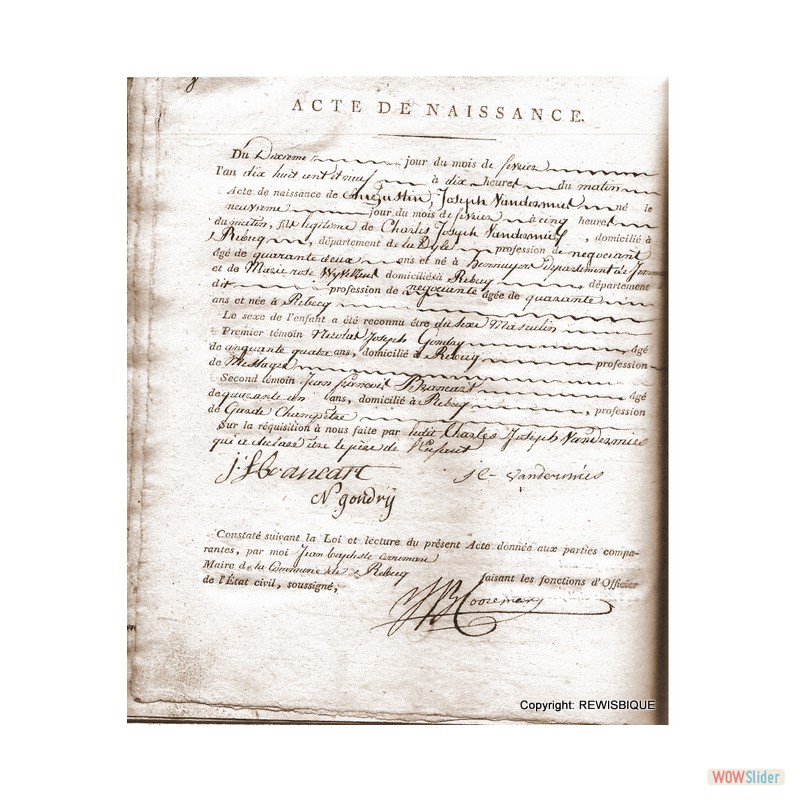 ACTE DE NAISSANCE.
Du Dixieme jour du mois de fevrier
l'an dix huit cent et neuf à dix heures du matin
Acte de naissance de Augustin, Joseph Vandermies né le
neuvieme jour du mois de fevrier à cinq heures
du matin, fils legitime de Charles Joseph Vandermies, domicilié à
Rebecq, département de la Dyle profession de negociant
âgé de quarante deux ans et né à departement de
et de Marie rose domiciliés à Rebecq, département
dit profession de negociante âgée de quarante
ans et née à Rebecq
Le sexe de l'enfant a été reconnu être du sexe Masculin
Premier témoin Nicolas Joseph Gondry âgé
de cinquante quatre ans, domicilié à Rebecq profession
de Messager
Second témoin Jean Brancart âgé
de quarante un ans, domicilié à Rebecq, profession
de Garde Champêtre
Sur la réquisition à nous faite par ledit Charles Joseph Vandermies
qui a declaré être le père de l'Enfant
N. gondrÿ
Constaté suivant la Loi et lecture du présent Acte donnée aux parties compa-
rantes, par moi Jean baptiste
Maire de la Commune de Rebecq faisant les fonctions d'Officier
de l'État civil, soussigné,
Copyright: REWISBIQUE
WOWSlider